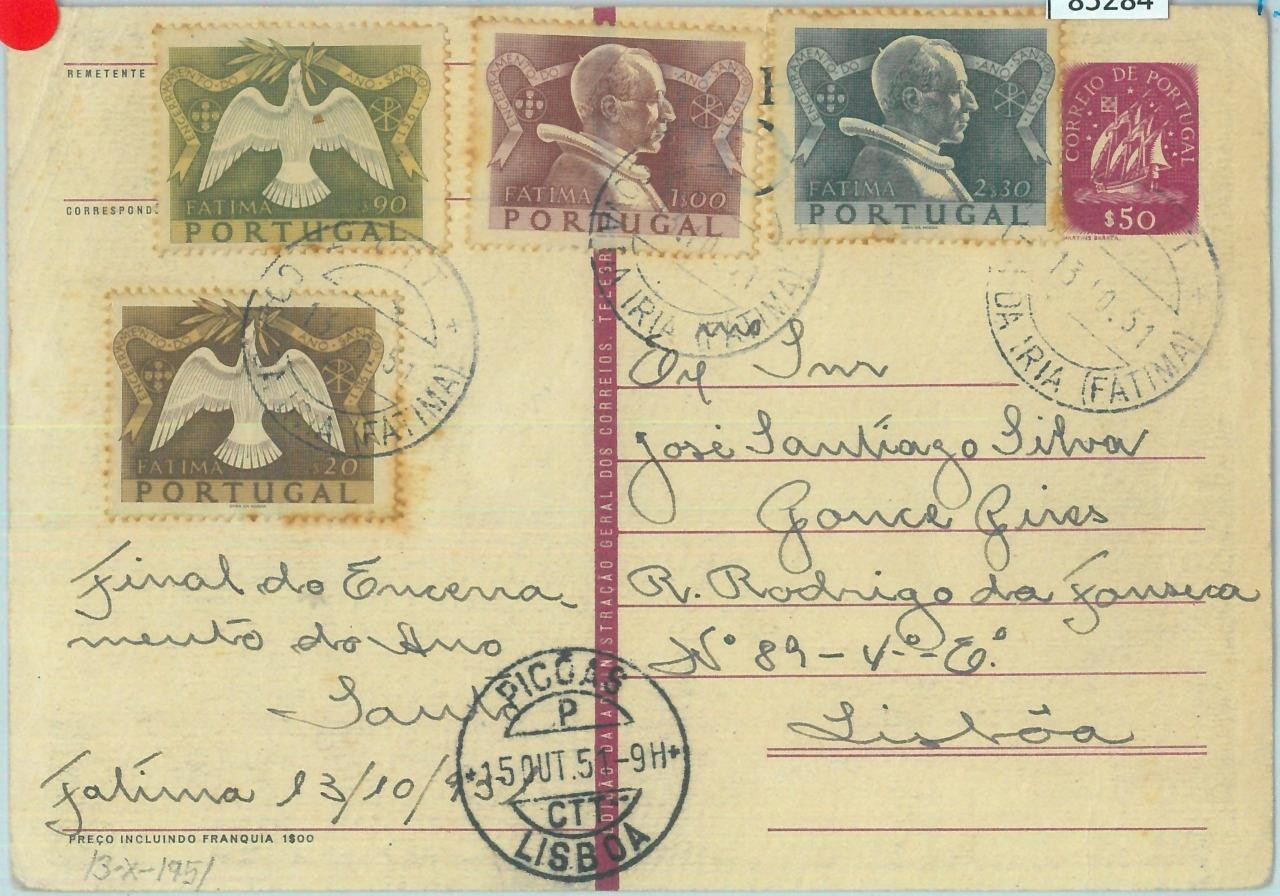 85284
REMETENTE
CORRESPOND.
ENCERRAMENTO·DO·ANO·SANTO·1951
FATIMA $90
PORTUGAL
ENCERRAMENTO·DO·ANO·SANTO·1951
FATIMA 1$00
PORTUGAL
ENCERRAMENTO·DO·ANO·SANTO·1951
FATIMA 2$30
PORTUGAL
CORREIO DE PORTUGAL
$50
MARTINS BARATA
ENCERRAMENTO·DO·ANO·SANTO·1951
FATIMA $20
PORTUGAL
IRIA (FATIMA)
13.10.51
DA IRIA (FATIMA)
(FATIMA)
EDIÇÃO DA ADMINISTRAÇÃO GERAL DOS CORREIOS, TELEGR
Snr
José Santiago Silva
R. Rodrigo da Fonseca
Nº 89 - 4º - E.º
Lisbôa
Final do Encerra-
mento do Ano
Santo
Fatima 13/10/951
PICOAS
P
15 OUT.51-9H
CTT
LISBOA
PREÇO INCLUINDO FRANQUIA 1$00
13-X-1951